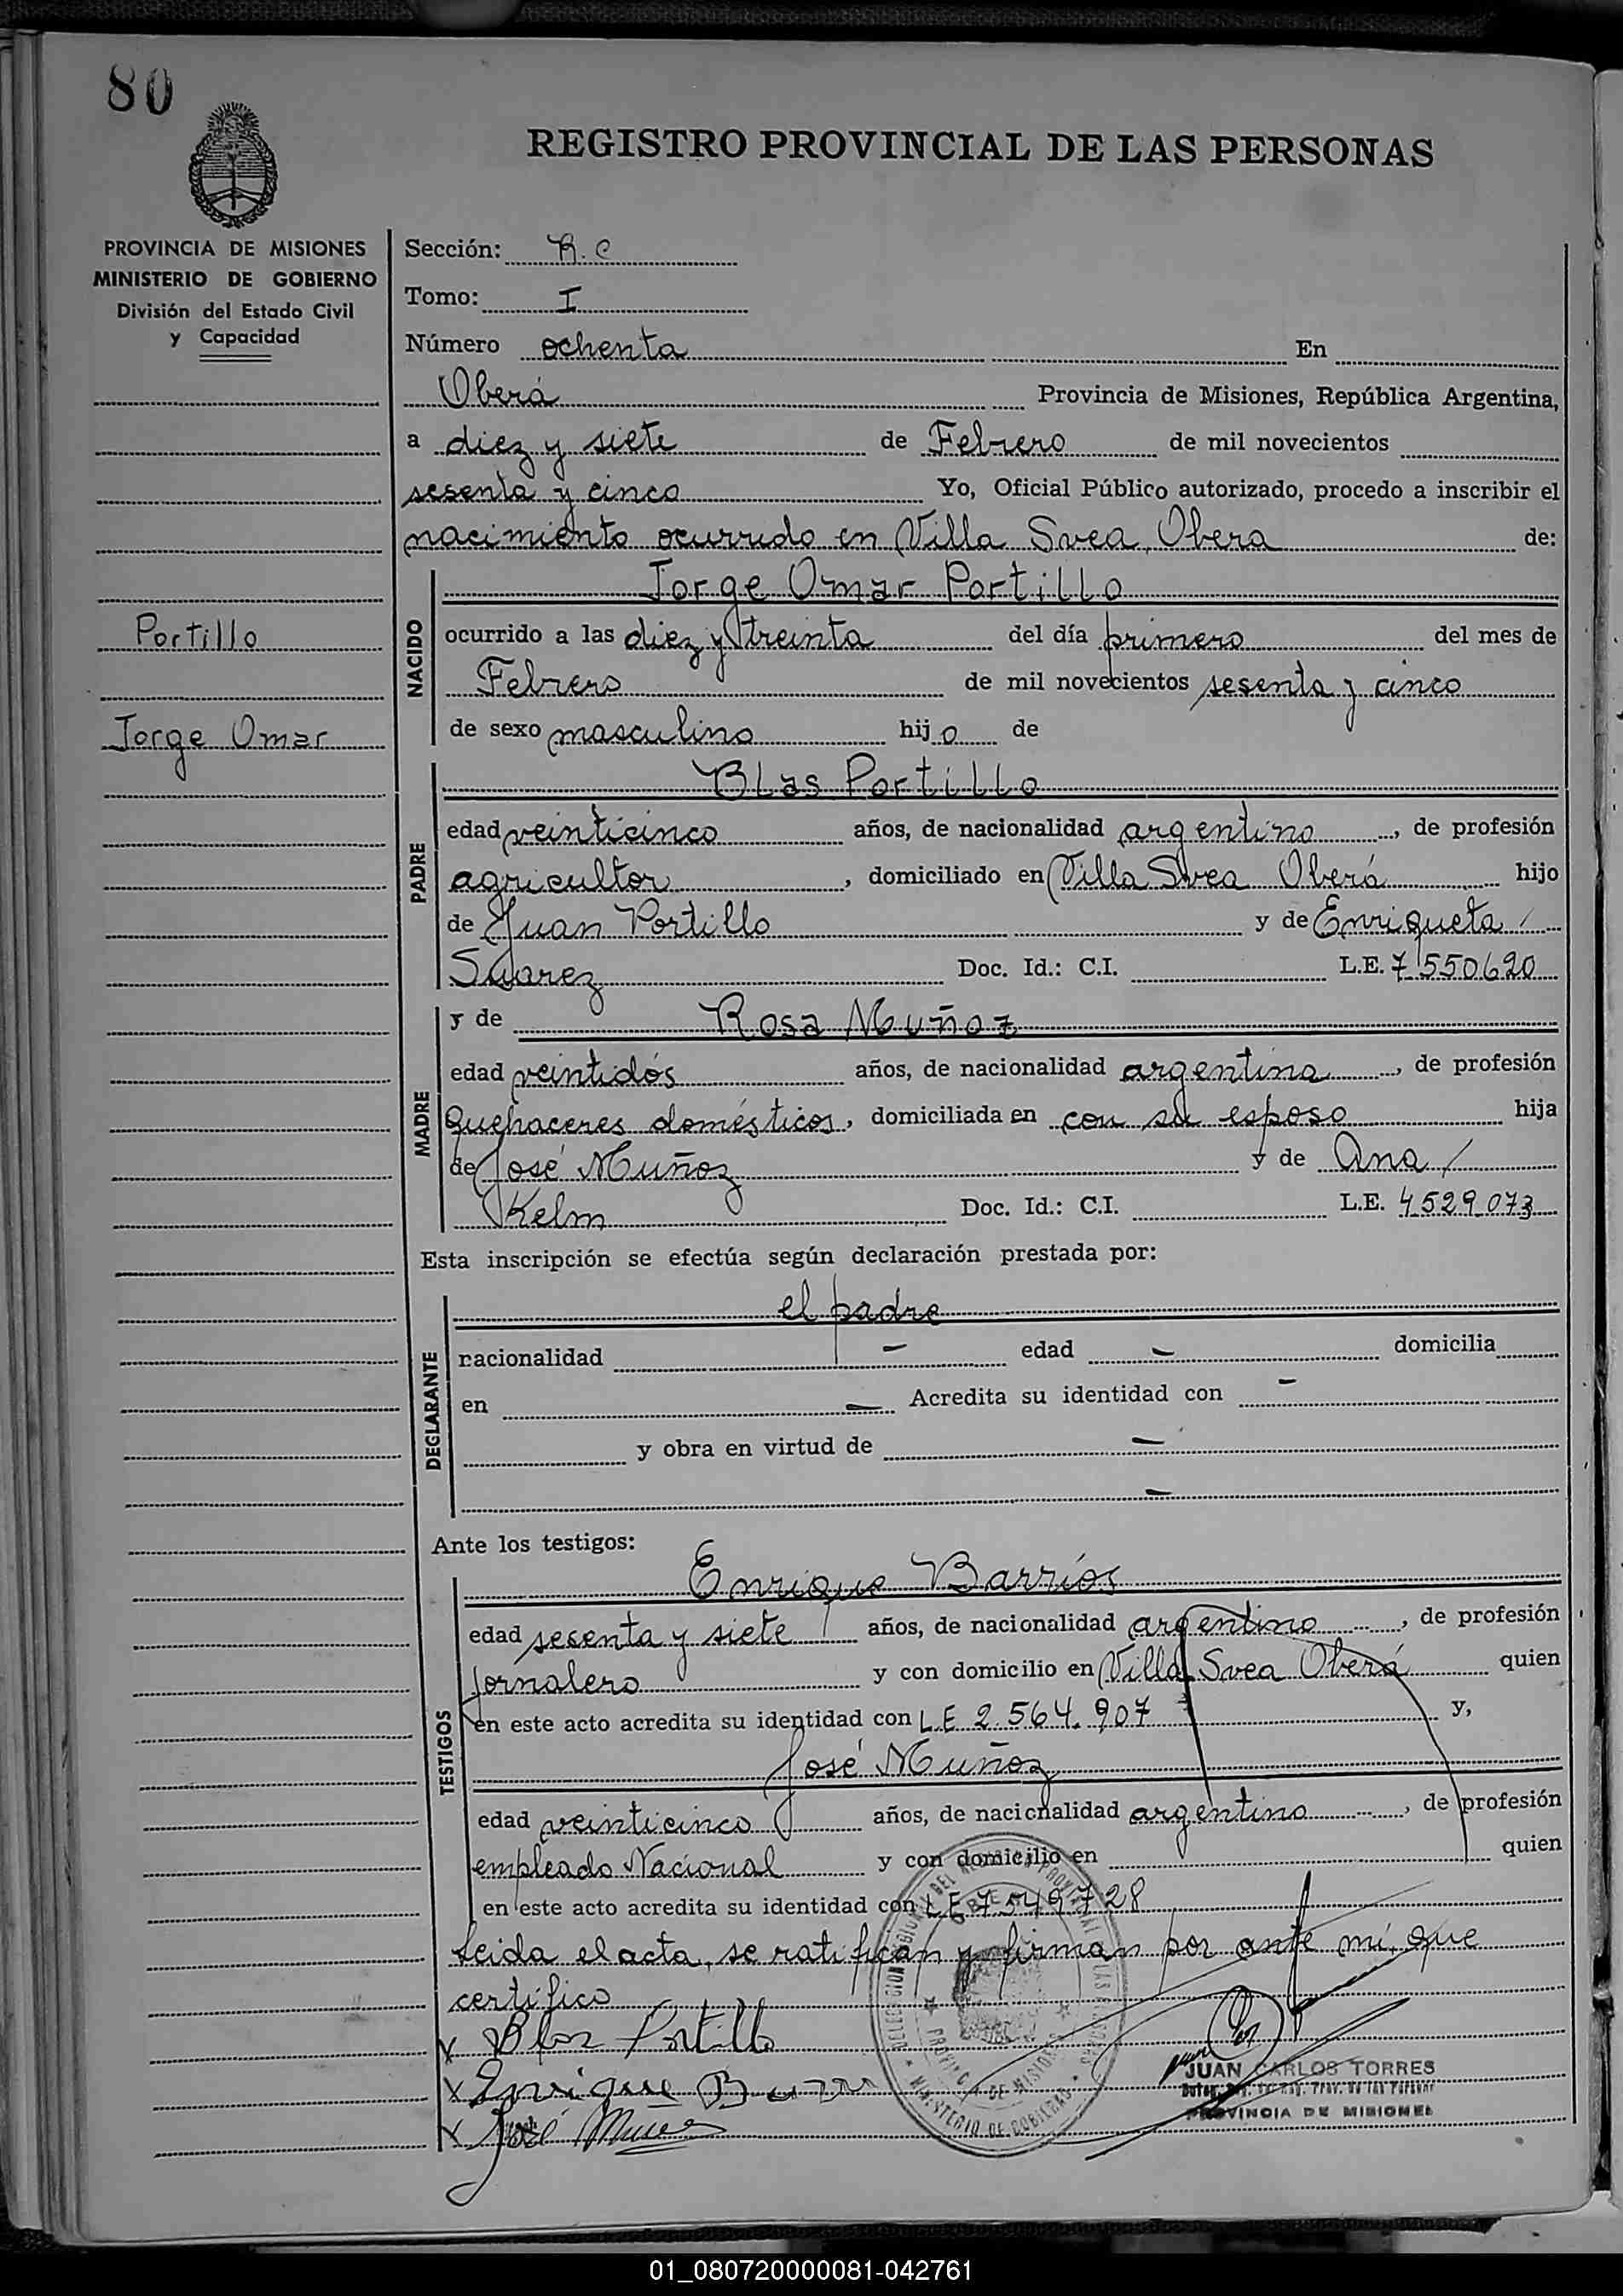 80
REGISTRO PROVINCIAL DE LAS PERSONAS
PROVINCIA DE MISIONES
MINISTERIO DE GOBIERNO
División del Estado Civil
y Capacidad
Portillo
Jorge Omar
Sección: R.C
Tomo: I
Número ochenta En
Oberá Provincia de Misiones, República Argentina,
a diez y siete de Febrero de mil novecientos
sesenta y cinco Yo, Oficial Público autorizado, procedo a inscribir el
nacimiento ocurrido en Villa Svea, Obera de:
NACIDO
Jorge Omar Portillo
ocurrido a las diez y treinta del día primero del mes de
Febrero de mil novecientos sesenta y cinco
de sexo masculino hijo de
PADRE
Blas Portillo
edad veinticinco años, de nacionalidad argentino, de profesión
agricultor, domiciliado en Villa Svea Oberá hijo
de Juan Portillo y de Enriqueta /
Suarez Doc. Id.: C.I. L.E. 7550620
MADRE
y de Rosa Muñoz
edad veintidós años, de nacionalidad argentina, de profesión
quehaceres domésticos, domiciliada en con su esposo hija
de José Muñoz y de Ana /
Kelm Doc. Id.: C.I. L.E. 4529073
Esta inscripción se efectúa según declaración prestada por:
DECLARANTE
el padre
nacionalidad — edad — domicilia
en — Acredita su identidad con —
y obra en virtud de —
—
Ante los testigos:
TESTIGOS
Enrique Barrios
edad sesenta y siete años, de nacionalidad argentino, de profesión
jornalero y con domicilio en Villa Svea Oberá quien
en este acto acredita su identidad con L E 2.564.907 y,
José Muñoz
edad veinticinco años, de nacionalidad argentino, de profesión
empleado Nacional y con domicilio en quien
en este acto acredita su identidad con L E 7549728
Leida el acta, se ratifican y firman por ante mí, que
certifico
x Blas Portillo
x Enrique
x José
PROVINCIA DE MISIONES
MINISTERIO DE GOBIERNO
JUAN CARLOS TORRES
PROVINCIA DE MISIONES
01_080720000081-042761